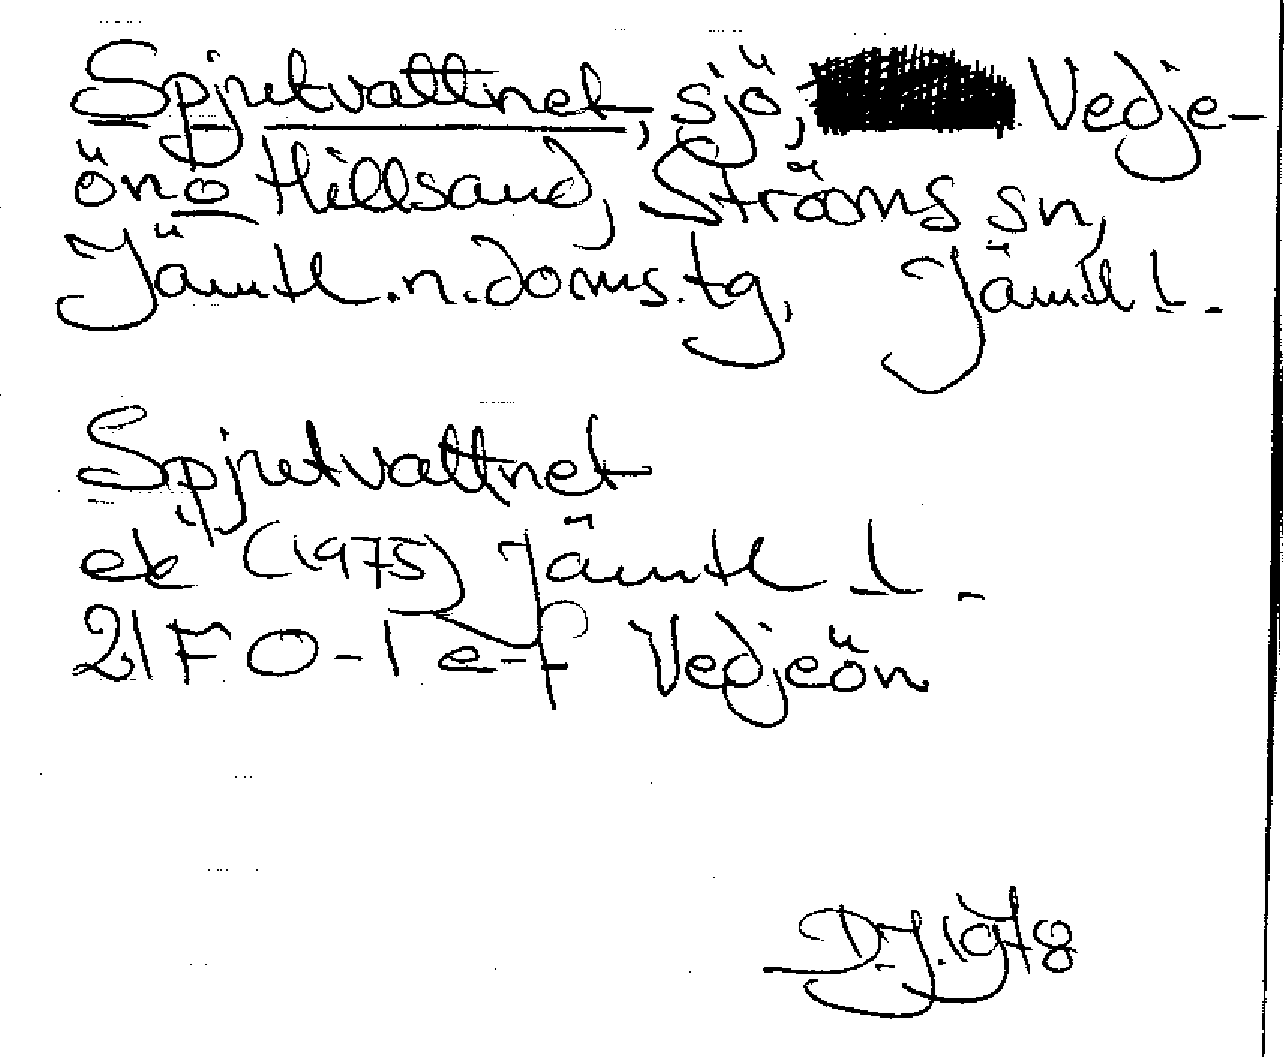 Spjutvattnet, sjö, Vedje-
ön o Hillsand, Ströms sn,
Jämtl.n.doms.tg, Jämtl l.
Spjutvattnet
ek (1975) Jämtl l.
21F 0-1 e-f Vedjeön
D.J.1978